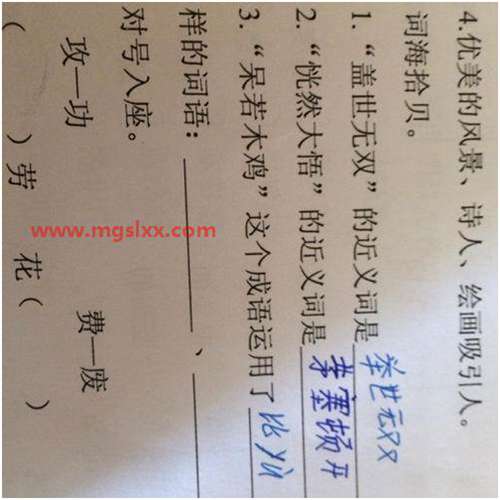 4.优美的风景、诗人、绘画吸引人。
词海拾贝。
1.“盖世无双”的近义词是举世无双
2.“恍然大悟”的近义词是茅塞顿开
3.“呆若木鸡”这个成语运用了比喻
样的词语：________、________
对号入座。
攻—功 费—废
）劳 花（ ）
www.mgslxx.com